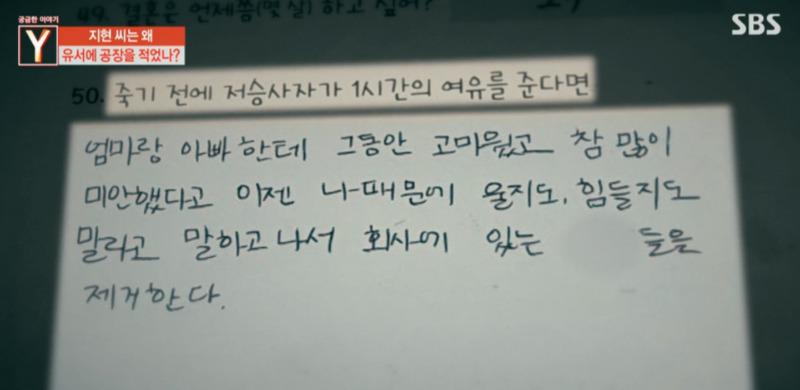 49. 결혼은 언제쯤(몇 살) 하고 싶어?
궁금한 이야기
Y
지현 씨는 왜
유서에 공장을 적었나?
SBS
50. 죽기 전에 저승사자가 1시간의 여유를 준다면
엄마랑 아빠한테 그동안 고마웠고 참 많이
미안했다고 이젠 나때문에 울지도, 힘들지도
말라고 말하고나서 회사에 있는 들은
제거한다.